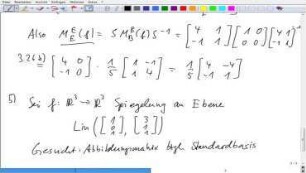 Also M_E^E(f) = S M_B^B(f) S^-1 = [4 1; -1 1] [1 0; 0 0] [4 1; -1 1]^-1
3.26b) = [4 0; -1 0] · 1/5 [1 -1; 1 4] = 1/5 [4 -4; -1 1]
5) Sei f: ℝ³ → ℝ³ Spiegelung an Ebene
Lin ([1; 0; 1], [3; 1; 1])
Gesucht: Abbildungsmatrix bzgl. Standardbasis